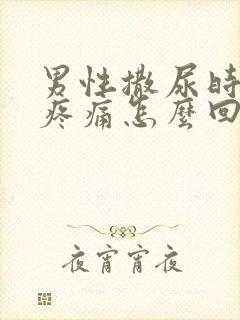 男性撒尿时
疼痛怎麼回
夜宵宵夜